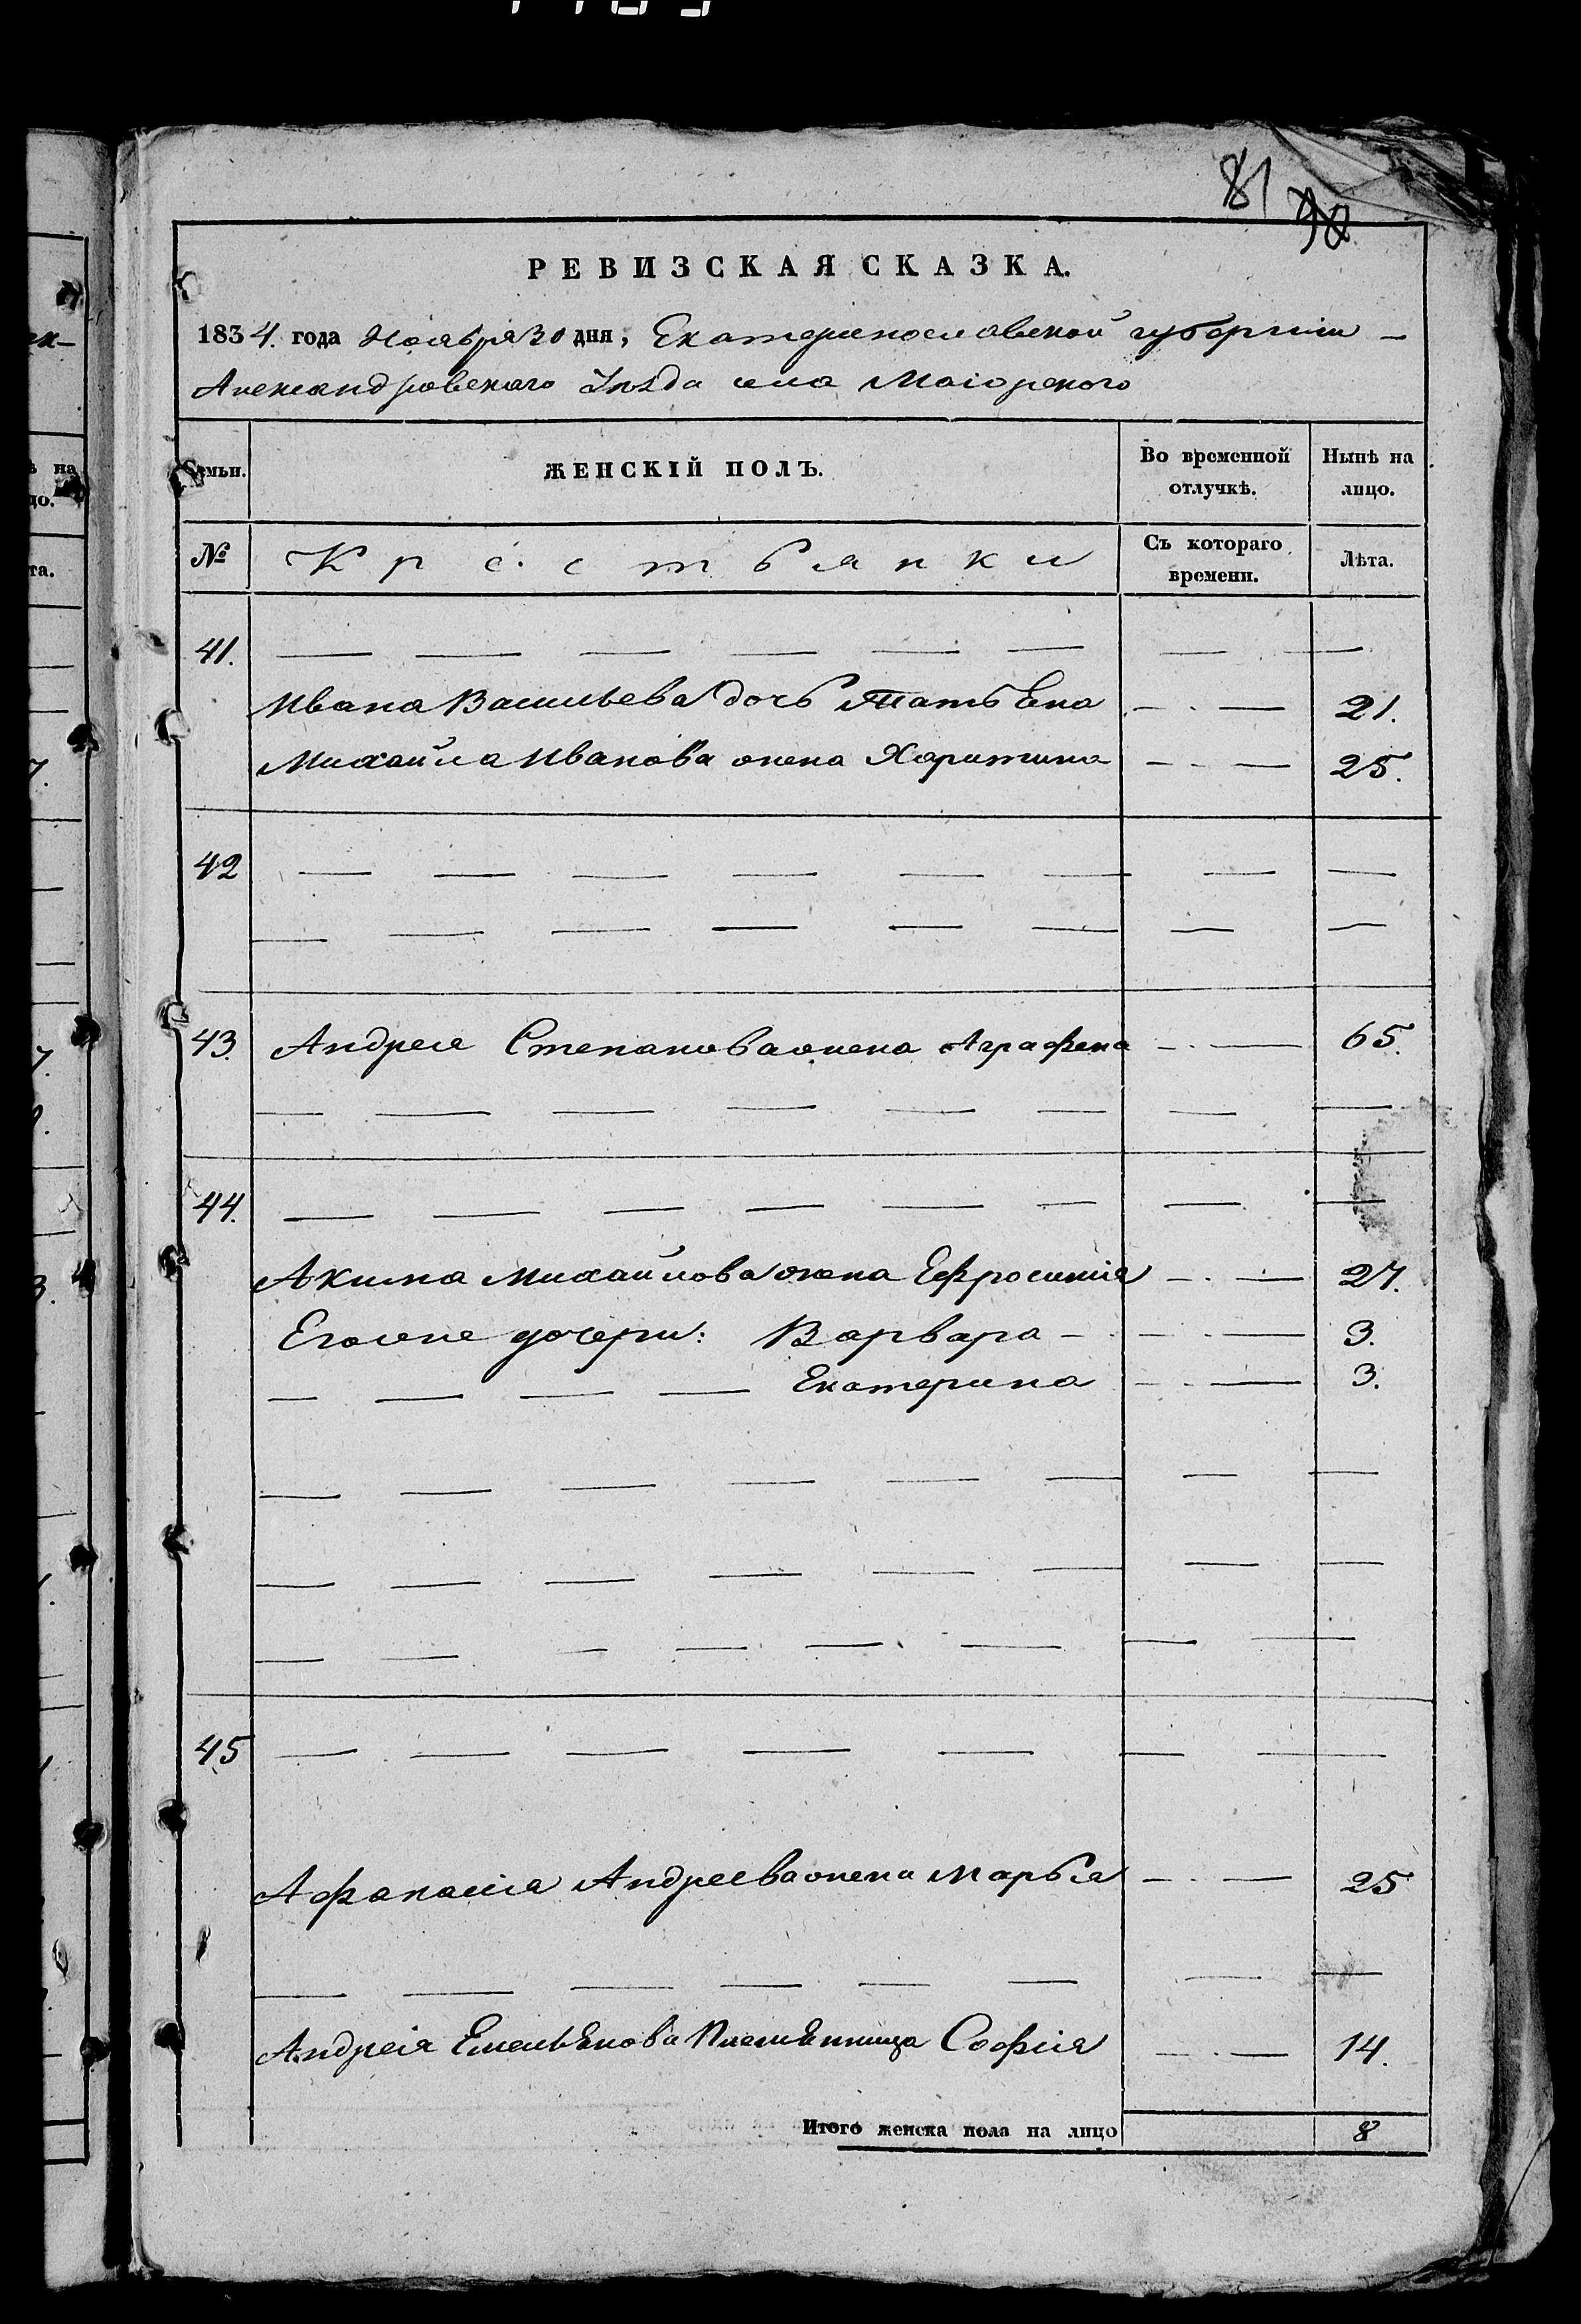 81 98
РЕВИЗСКАЯ СКАЗКА.
1834. года Ноября 30 дня, Екатеринославской губернии –
Александровскаго Уѣзда села Маіорского
Семьи. ЖЕНСКІЙ ПОЛЪ. Во временной отлучкѣ. Нынѣ на лицо.
№ Крестьянки Съ котораго времени. Лѣта.
41. — — — — — — — —
Ивана Васильева дочь Татьяна — . — 21.
Михайла Иванова жена Харитина — . — 25.
42 — — — — — — — —
— — — — — — — —
43. Андрея Степанова жена Аграфена — . — 65.
— — — — — — — —
44. — — — — — — — —
Акима Михайлова жена Ефросинія — . — 27.
Его же дочери: Варвара — . — 3.
— — — — Екатерина — . — 3.
— — — — — — — —
— — — — — — — —
— — — — — — — —
45 — — — — — — —
Афанасія Андреева жена Марья — . — 25
— — — — — — — —
Андрея Емельянова Племянница Софія — . — 14.
Итого женска пола на лицо 8